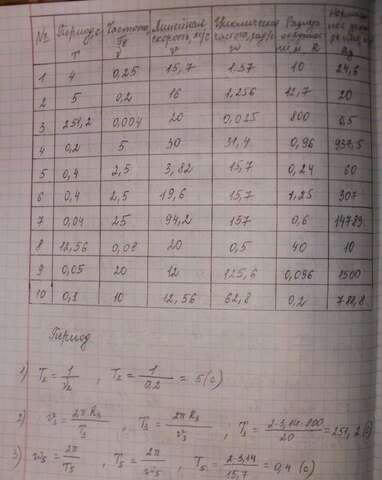 № Период с T Частота Гц ν Линейная скорость, м/с v Циклическая частота, рад/с ω Радиус м R
1 4 0,25 15,7 1,57 10 24,6
2 5 0,2 16 1,256 12,7 20
3 251,2 0,004 20 0,025 800 0,5
4 0,2 5 30 31,4 0,96
5 0,4 2,5 3,82 15,7 0,24 60
6 0,4 2,5 19,6 15,7 1,25 307
7 0,04 25 94,2 157 0,6 14789
8 12,56 0,08 20 0,5 40 10
9 0,05 20 12 125,6 0,096 1500
10 0,1 10 12,56 62,8 0,2 788,8
Период
1) T₂ = 1/ν₂ , T₂ = 1/0,2 = 5 (с)
2) v₃ = 2πR₃/T₃ , T₃ = 2πR₃/v₃ , T₃ = 2·3,14·800/20 = 251,2 (с)
3) ω₅ = 2π/T₅ , T₅ = 2π/ω₅ , T₅ = 2·3,14/15,7 = 0,4 (с)